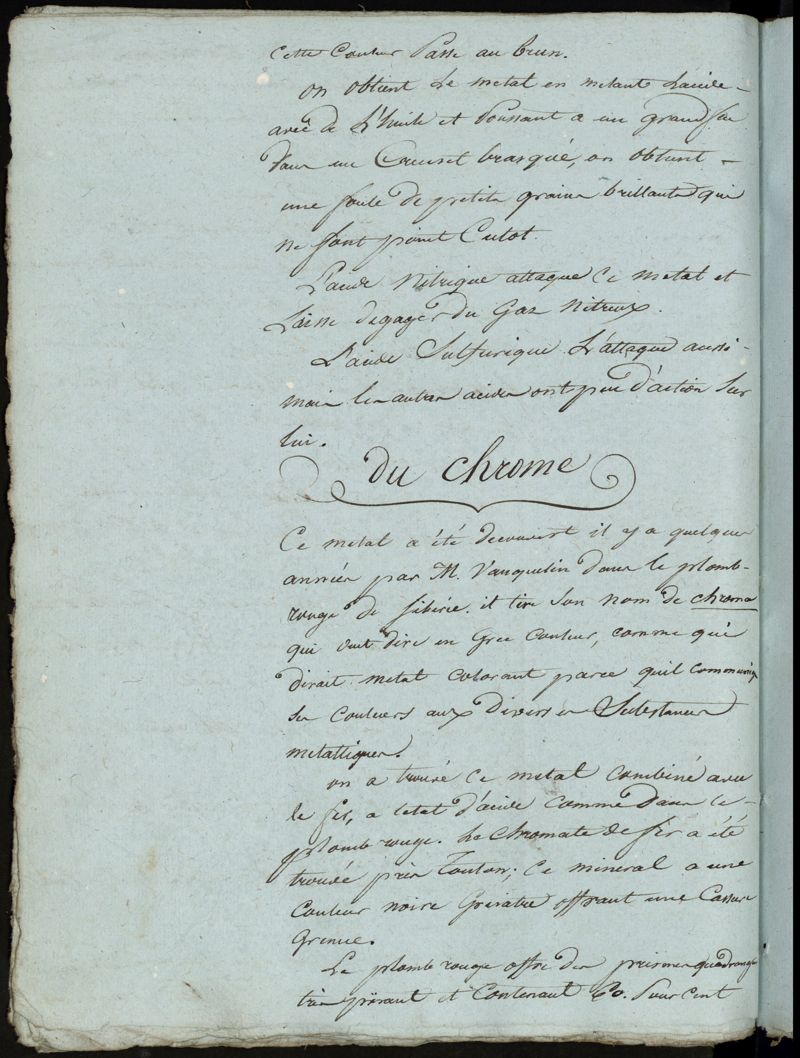 cette Couleur Passe au brun.
on obtient Le metal en melant L'acide
avec de L'huile et Poussant a un grand feu
dans un Creuset brasqué, on obtient
une foule de petits grains brillants qui
ne font point Culot.
L'acide Nitrique attaque Ce metal et
Laisse degager du Gaz Nitreux.
L'acide Sulfurique L'attaque aussi
mais les autres acides ont peu d'action Sur
lui.
du chrome
Ce metal a été decouvert il y a quelques
années par M. Vauquelin dans le plomb
rouge de Siberie. il tire Son nom de chroma
qui veut dire en Grec Couleur, comme qui
dirait metal colorant parce qu'il communique
ses Couleurs aux diverses Substances
metalliques.
on a trouvé ce metal combiné avec
le fer, a l'etat d'acide comme dans le
plomb rouge. Le Chromate de fer a été
trouvé près Toulon; Ce mineral a une
Couleur noire Grisatre offrant une Cassure
Grenue.
Le plomb rouge offre des prismes quadrang
très pesant et Contenant 60. Pour Cent